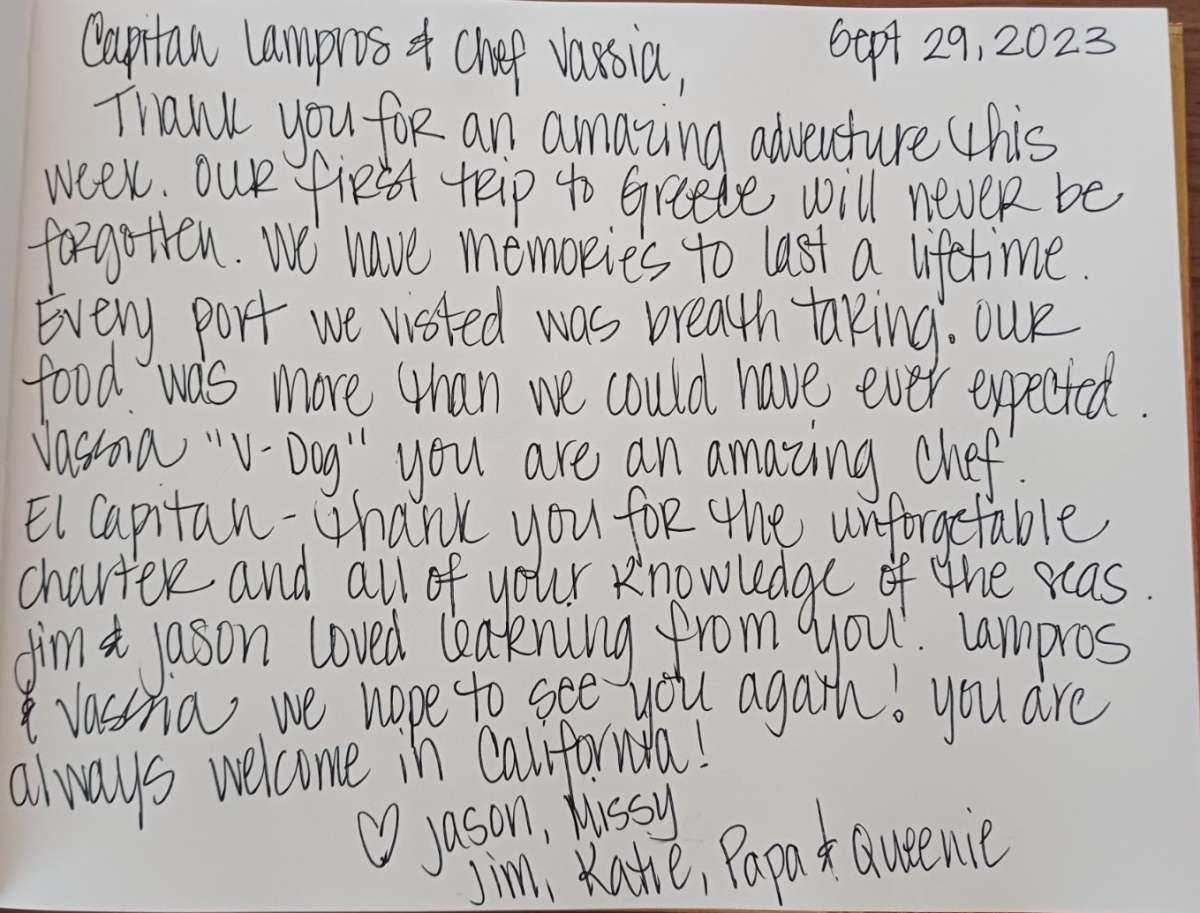 Capitan Lampros & Chef Vassia, Sept 29, 2023
Thank you for an amazing adventure this
week. Our first trip to Greece will never be
forgotten. We have memories to last a lifetime.
Every port we visted was breath taking. Our
food was more than we could have ever expected.
Vassia "V-Dog" you are an amazing chef.
El Capitan - thank you for the unforgetable
charter and all of your knowledge of the seas.
Jim & Jason loved learning from you. Lampros
& Vassia we hope to see you again! you are
always welcome in California!
♡ Jason, Missy
Jim, Katie, Papa & Queenie